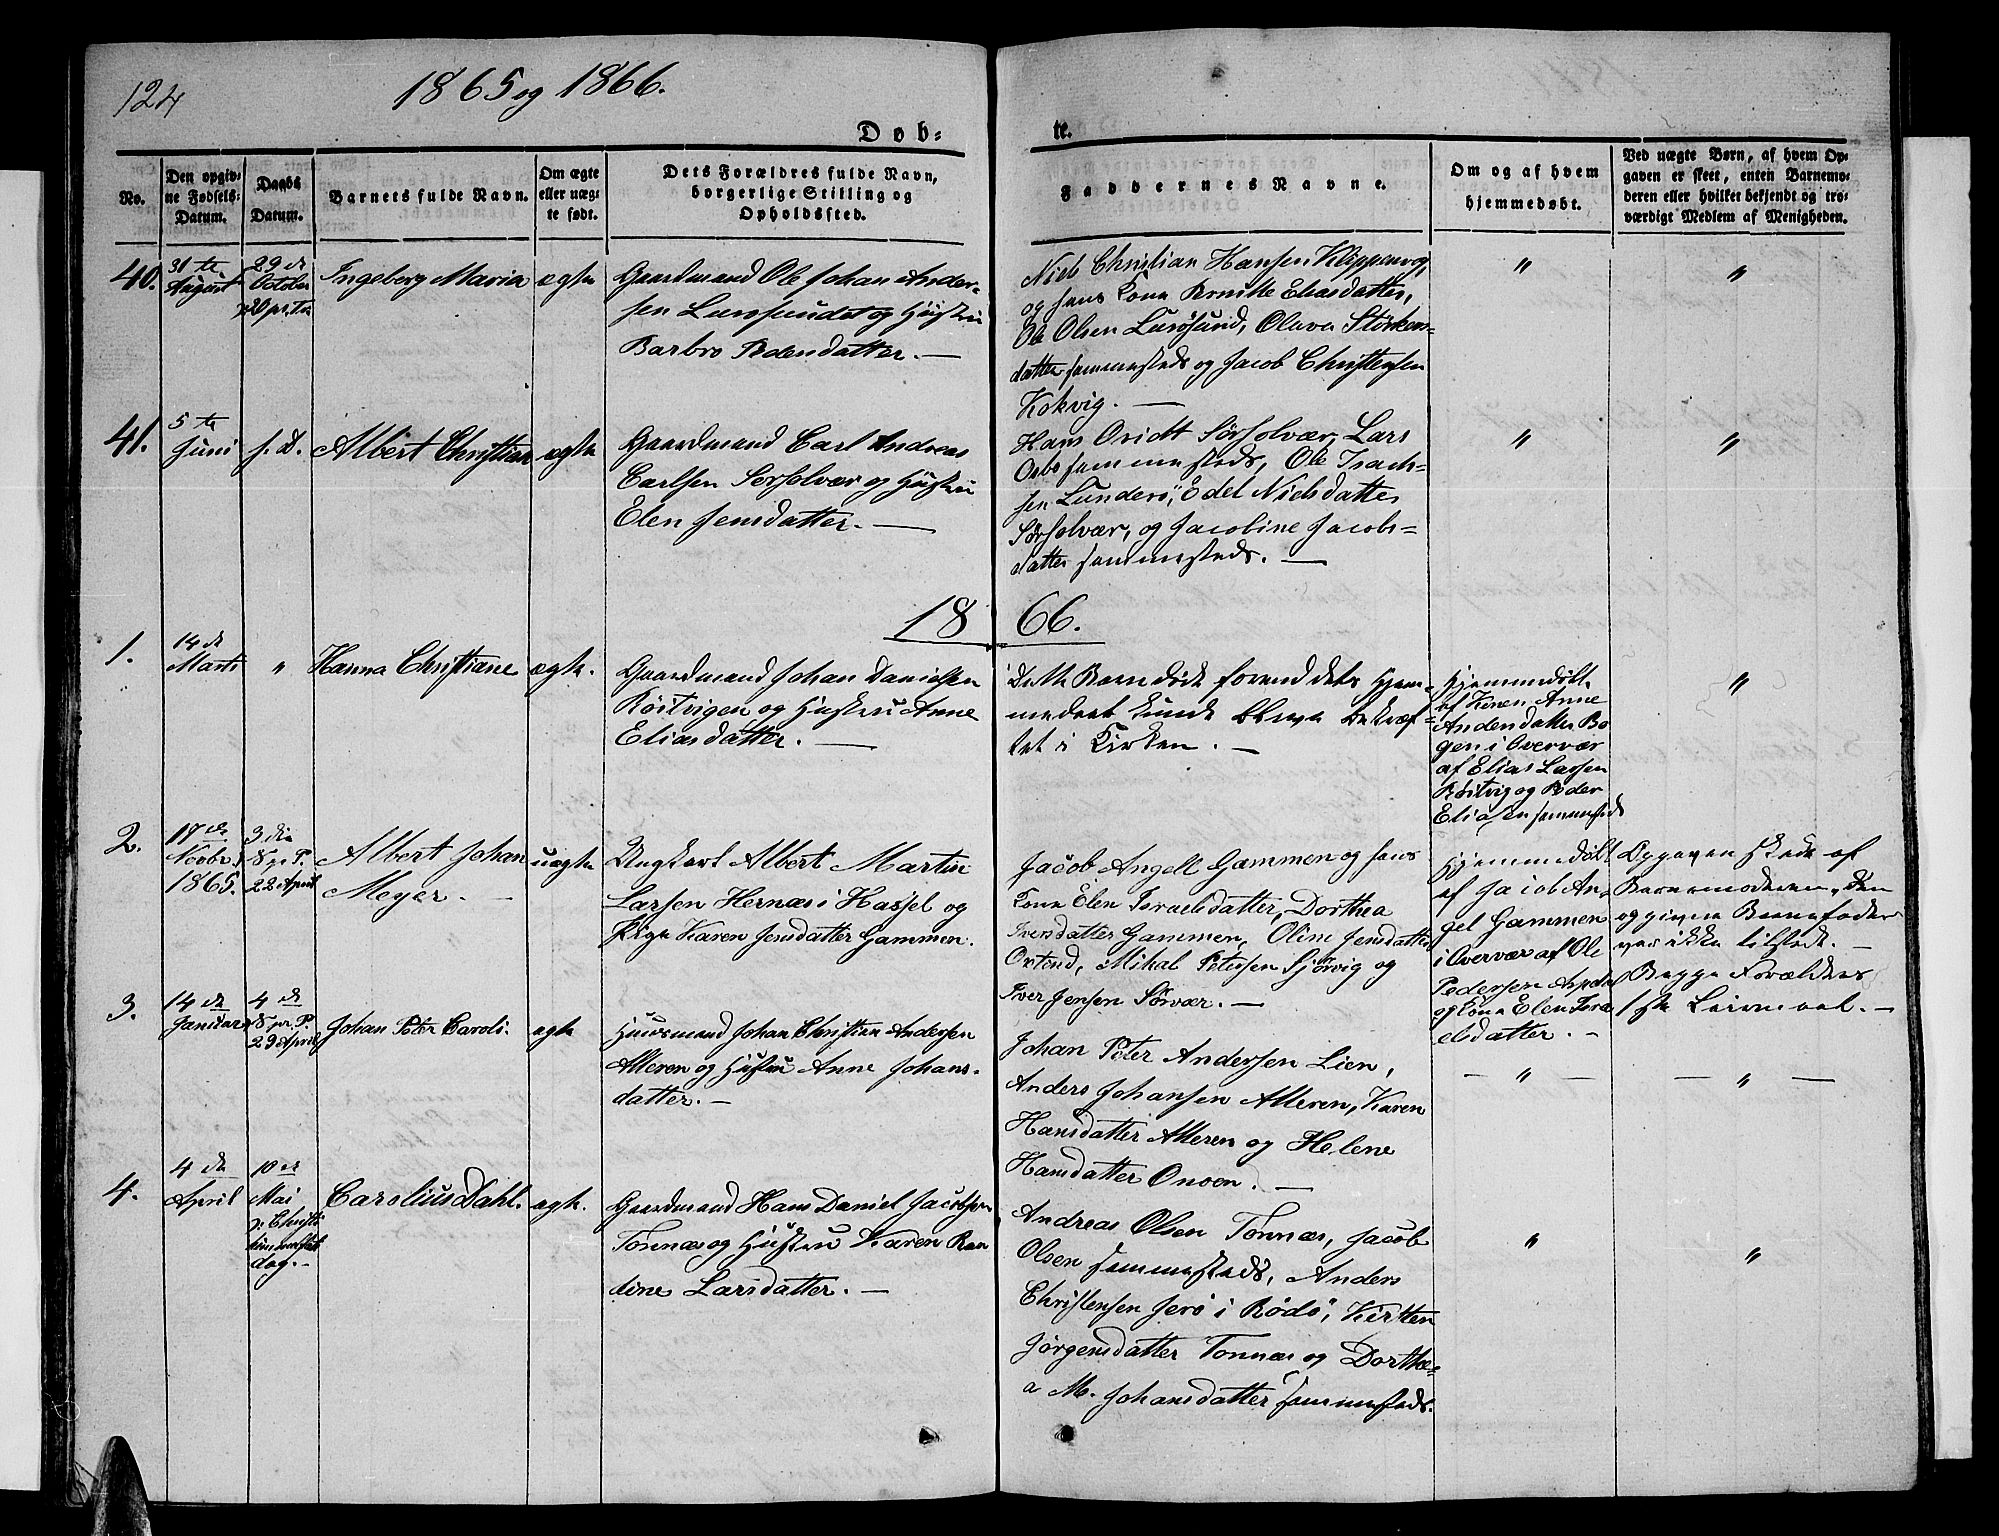 124
1865 og 1866.
Døb=
te.
No.
Den opgiv-
ne Fødsels-
Datum.
Daabs
Datum.
Barnets fulde Navn.
Om ægte
eller uæg-
te født.
Dets Forældres fulde Navn,
borgerlige Stilling og
Opholdssted.
Faddernes Navne.
Om og af hvem
hjemmedøbt.
Ved uægte Børn, af hvem Op-
gaven er skeet, enten Barnemo-
deren eller hvilket bekjendt og tro-
værdigt Medlem af Menigheden.
40.
31 te
August
29 de
October
20 p. Tr.
Ingeberg Maria
ægte
Gaardmand Ole Johan Ander-
sen Lurøsundet og Hustru
Barbro Pedersdatter. —
Niels Christian Hansen Klippenvog,
og hans Kone Eliasdatter,
Ole Olsen Lurøsund, Olava Størkers-
datter sammesteds og Jacob Christensen
Kokvig. —
"
"
41.
5 te
Juni
f. D.
Albert Christian
ægte
Gaardmand Carl Andreas
Carlsen Sørsolvær og Hustru
Elen Jensdatter. —
Hans Sørsolvær, Lars
sammesteds, Ole Isach-
sen Lunderø, Edel Nielsdatter
Sørsolvær, og Jacobine Jacobs-
datter sammesteds. —
"
"
1866.
1.
14 de
Marts
"
Hanna Christiane
ægte.
Gaardmand Johan Danielsen
Röstvigen og Hustru Anne
Eliasdatter. —
Dette Barn døde forend dets Hjem-
medaab kunde blive bekræf-
tet i Kirken. —
Hjemmedøbt
af Konen Anne
Andersdatter Bo-
gen i Overvær
af Elias Larsen
Røstvig og Peder
Eliasen sammesteds
"
2.
17 de
Novbr
1865.
3 die
S. p. P.
22 April
Albert Johan
Meyer. —
uægte
Ungkarl Albert Martin
Larsen Hernæs i Hassel og
Pige Karen Jensdatter Gammen.
Jacob Angell Gammen og hans
Kone Elen Israelsdatter, Dorthea
Iversdatter Gammen, Oline Jensdatter
Mikal Petersen Sjörvig og
Iver Jensen Sörvær. —
Hjemmedøbt
af Jacob An-
gel Gammen
i Overvær af Ole
Pedersen
og Kone Elen Isra-
elsdatter. —
Opgaven skede af
Barnemoderen, den
opgivne Barnefader
var ikke tilstede. —
Begge Forældres
1ste Leiermaal. —
3.
14 de
Januar
4 de
S. p. P.
29 April
Johan Peter Caroli.
ægte
Huusmand Johan Christian Andersen
Alteren og Hustru Anne Johans-
datter. —
Johan Peter Andersen Lien,
Anders Johansen Alteren, Karen
Hansdatter Alteren og Helene
Hansdatter Onøen. —
— " —
— " —
4.
4 de
April
10 de
Mai
p. Christi
himmelfarts
dag. —
Carolius Dahl.
ægte.
Gaardmand Hans Daniel Jacobsen
Tonnæs og Hustru Karen Ran-
dine Larsdatter. —
Andreas Olsen Tonnæs, Jacob
Olsen sammesteds, Anders
Christensen Jerø i Rødø, Kirsten
Jørgensdatter Tonnæs og Dorthe-
a M. Johansdatter sammesteds.
"
"